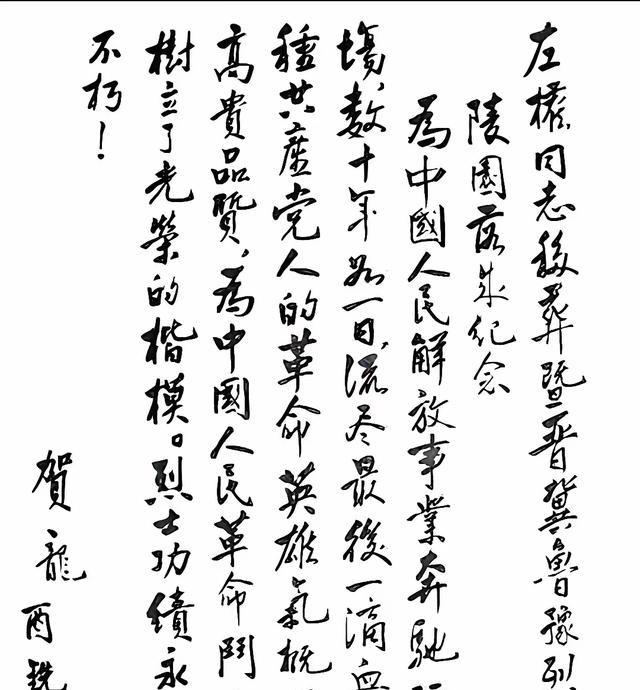 左權同志移葬暨晉冀魯豫烈
陵園落成紀念
為中國人民解放事業奔馳
場，數十年如一日，流尽最後一滴血
種共產党人的革命英雄氣概
高貴品質，為中國人民革命鬥
樹立了光榮的楷模。烈士功績永
不朽！
賀龍
酉銑